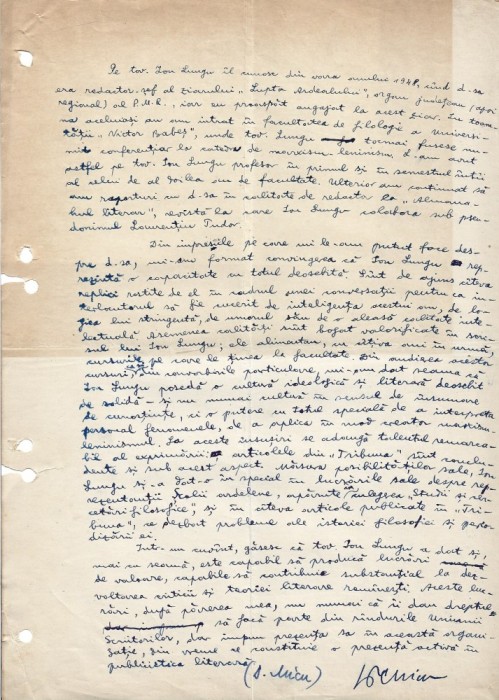 Pe tov. Ion Lungu îl cunosc din vara anului 1948, cînd d-sa
era redactor-şef al ziarului „Lupta Ardealului", organ judeţean (apoi
regional) al P.M.R., iar eu proaspăt angajat la acest ziar. În toam-
na aceluiaşi an am intrat în facultatea de filologie a Universi-
tăţii „Victor Babeş", unde tov. Lungu tocmai fusese nu-
mit conferenţiar la catedra de marxism-leninism. L-am avut
astfel pe tov. Ion Lungu profesor în primul şi în semestrul întîi
al celui de al doilea an de facultate. Ulterior am continuat să
am raporturi cu d-sa în calitate de redactor la „Almana-
hul literar", revistă la care Ion Lungu colabora sub pseu-
donimul Laurenţiu Tudor.
Din impresiile pe care mi le-am putut face des-
pre d-sa, mi-am format convingerea că Ion Lungu rep-
rezintă o capacitate cu totul deosebită. Sînt de ajuns cîteva
replici rostite de el în cadrul unei conversaţii pentru ca in-
terlocutorul să fie cucerit de inteligenţa acestui om, de lo-
gica lui stringentă, de umorul său de o aleasă calitate inte-
lectuală. Asemenea calităţi sînt bogat valorificate în scri-
sul lui Ion Lungu; ele alimentau, cu cîţiva ani în urmă,
cursurile pe care le ţinea la facultate. Din audierea acestor
cursuri, ca şi din convorbirile particulare, mi-am dat seama că
Ion Lungu posedă o cultură ideologică şi literară deosebit
de solidă – şi nu numai cultură în sensul de însumare
de cunoştinţe, ci o putere cu totul specială de a interpreta
personal fenomenele, de a aplica în mod creator marxism-
leninismul. La aceste însuşiri se adaugă talentul remarca-
bil al exprimării: articolele din „Tribuna" sînt conclu-
dente şi sub acest aspect. Măsura posibilităţilor sale, Ion
Lungu şi-a dat-o în special în lucrările sale despre rep-
rezentanţii Şcolii ardelene, apărute în culegerea „Studii şi cer-
cetări filosofice" şi în cîteva articole publicate în „Tri-
buna", ce dezbat probleme ale istoriei filosofiei şi perio-
dizării ei.
Într-un cuvînt, găsesc că tov. Ion Lungu a dat şi,
mai cu seamă, este capabil să producă lucrări
de valoare, capabile să contribuie substanţial la dez-
voltarea criticii şi teoriei literare romîneşti. Aceste lu-
crări, după părerea mea, nu numai că îi dau dreptul
să facă parte din rîndurile Uniunii
Scriitorilor, dar impun prezenţa sa în această organi-
zaţie, din vreme ce constituie o prezenţă activă în
publicistica literară.
(D. Micu)